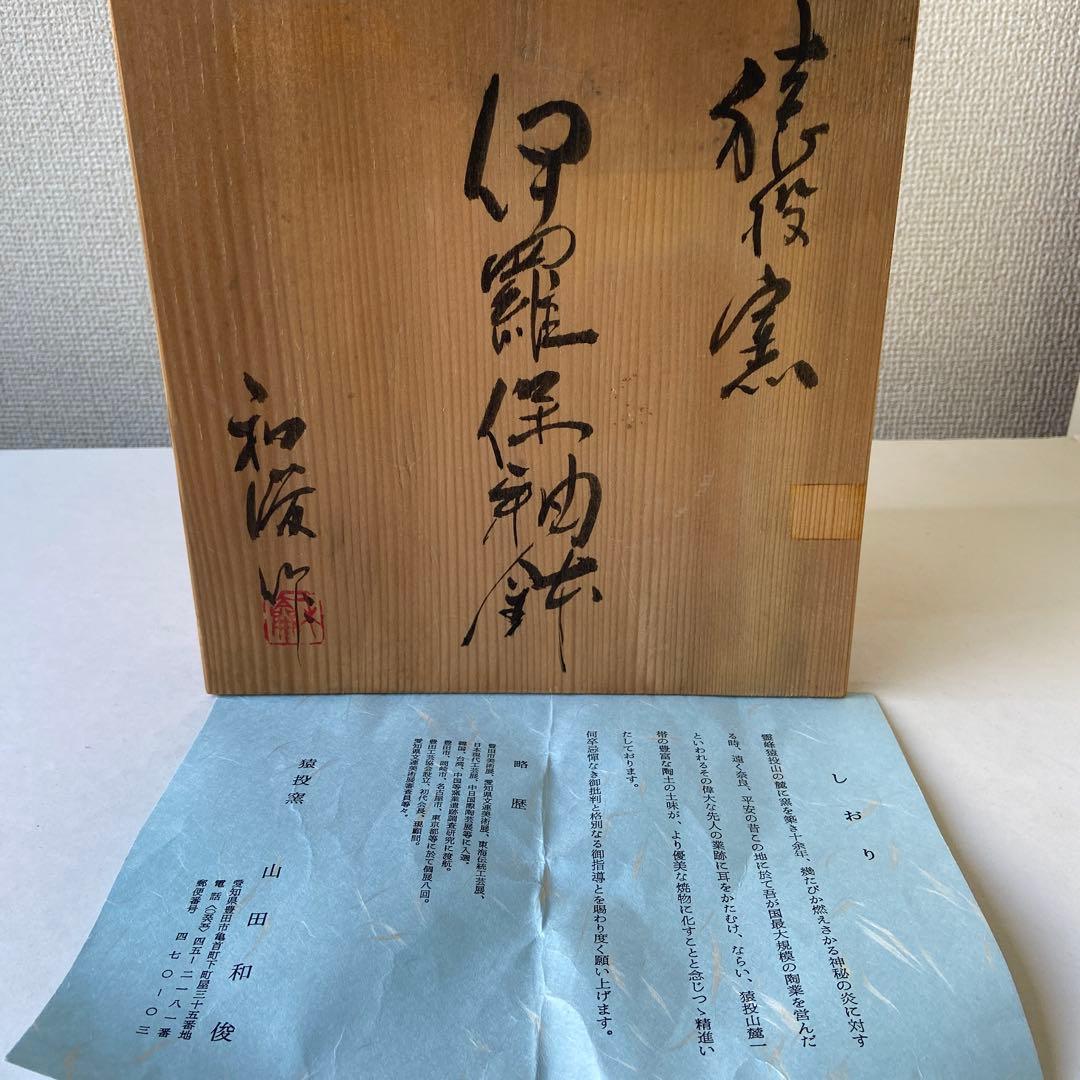 猿投窯
伊羅保釉鉢
和俊作
しおり
霊峰猿投山の麓に窯を築き十余年、幾たびか燃えさかる神秘の炎に対す
る時、遠く奈良、平安の昔この地に於て吾が国最大規模の陶業を営んだ
といわれるその偉大な先人の業跡に耳をかたむけ、ならい、猿投山麓一
帯の豊富な陶土の土味が、より優美な焼物に化すことと念じつゝ精進い
たしております。
何卒忌憚なき御批判と格別なる御指導とを賜わり度く願い上げます。
略歴
豊田市美術展、愛知県文連美術展、東海伝統工芸展、
日本現代工芸展、中日国際陶芸展等に入選、
韓国、台湾、中国等窯業遺跡調査研究に渡航。
豊田市、岡崎市、名古屋市、東京都等に於て個展八回。
豊田工芸協会設立、初代会長、現顧問。
愛知県文連美術展審査員等々。
猿投窯 山田和俊
愛知県豊田市亀首町下町屋三十五番地
電話 四五ー二一八一番
郵便番号 四七〇ー〇三